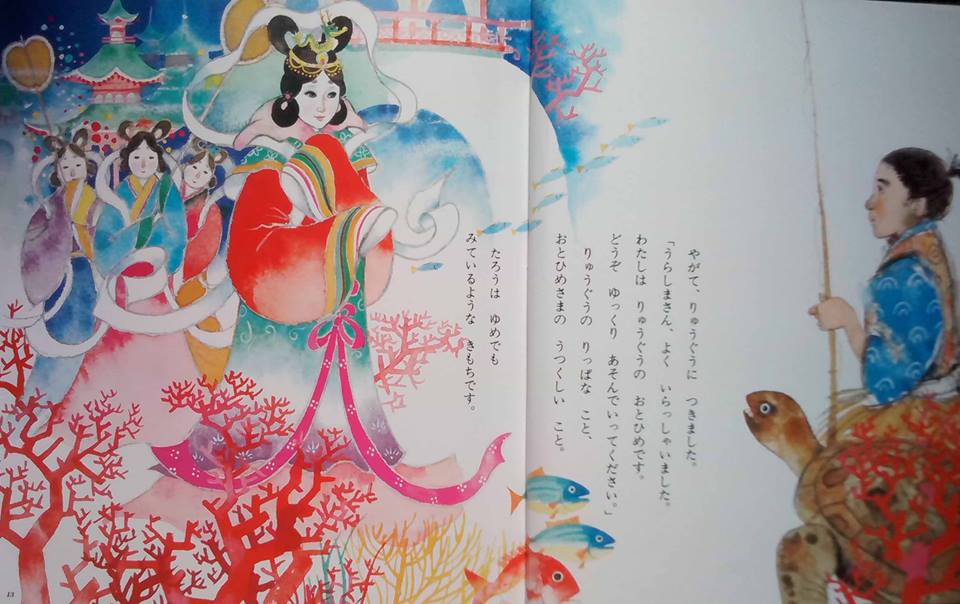 やがて、りゅうぐうに つきました。
「うらしまさん、よく いらっしゃいました。
わたしは りゅうぐうの おとひめです。
どうぞ ゆっくり あそんでいってください。」
りゅうぐうの りっぱな こと、
おとひめさまの うつくしい こと。
たろうは ゆめでも
みているような きもちです。
13